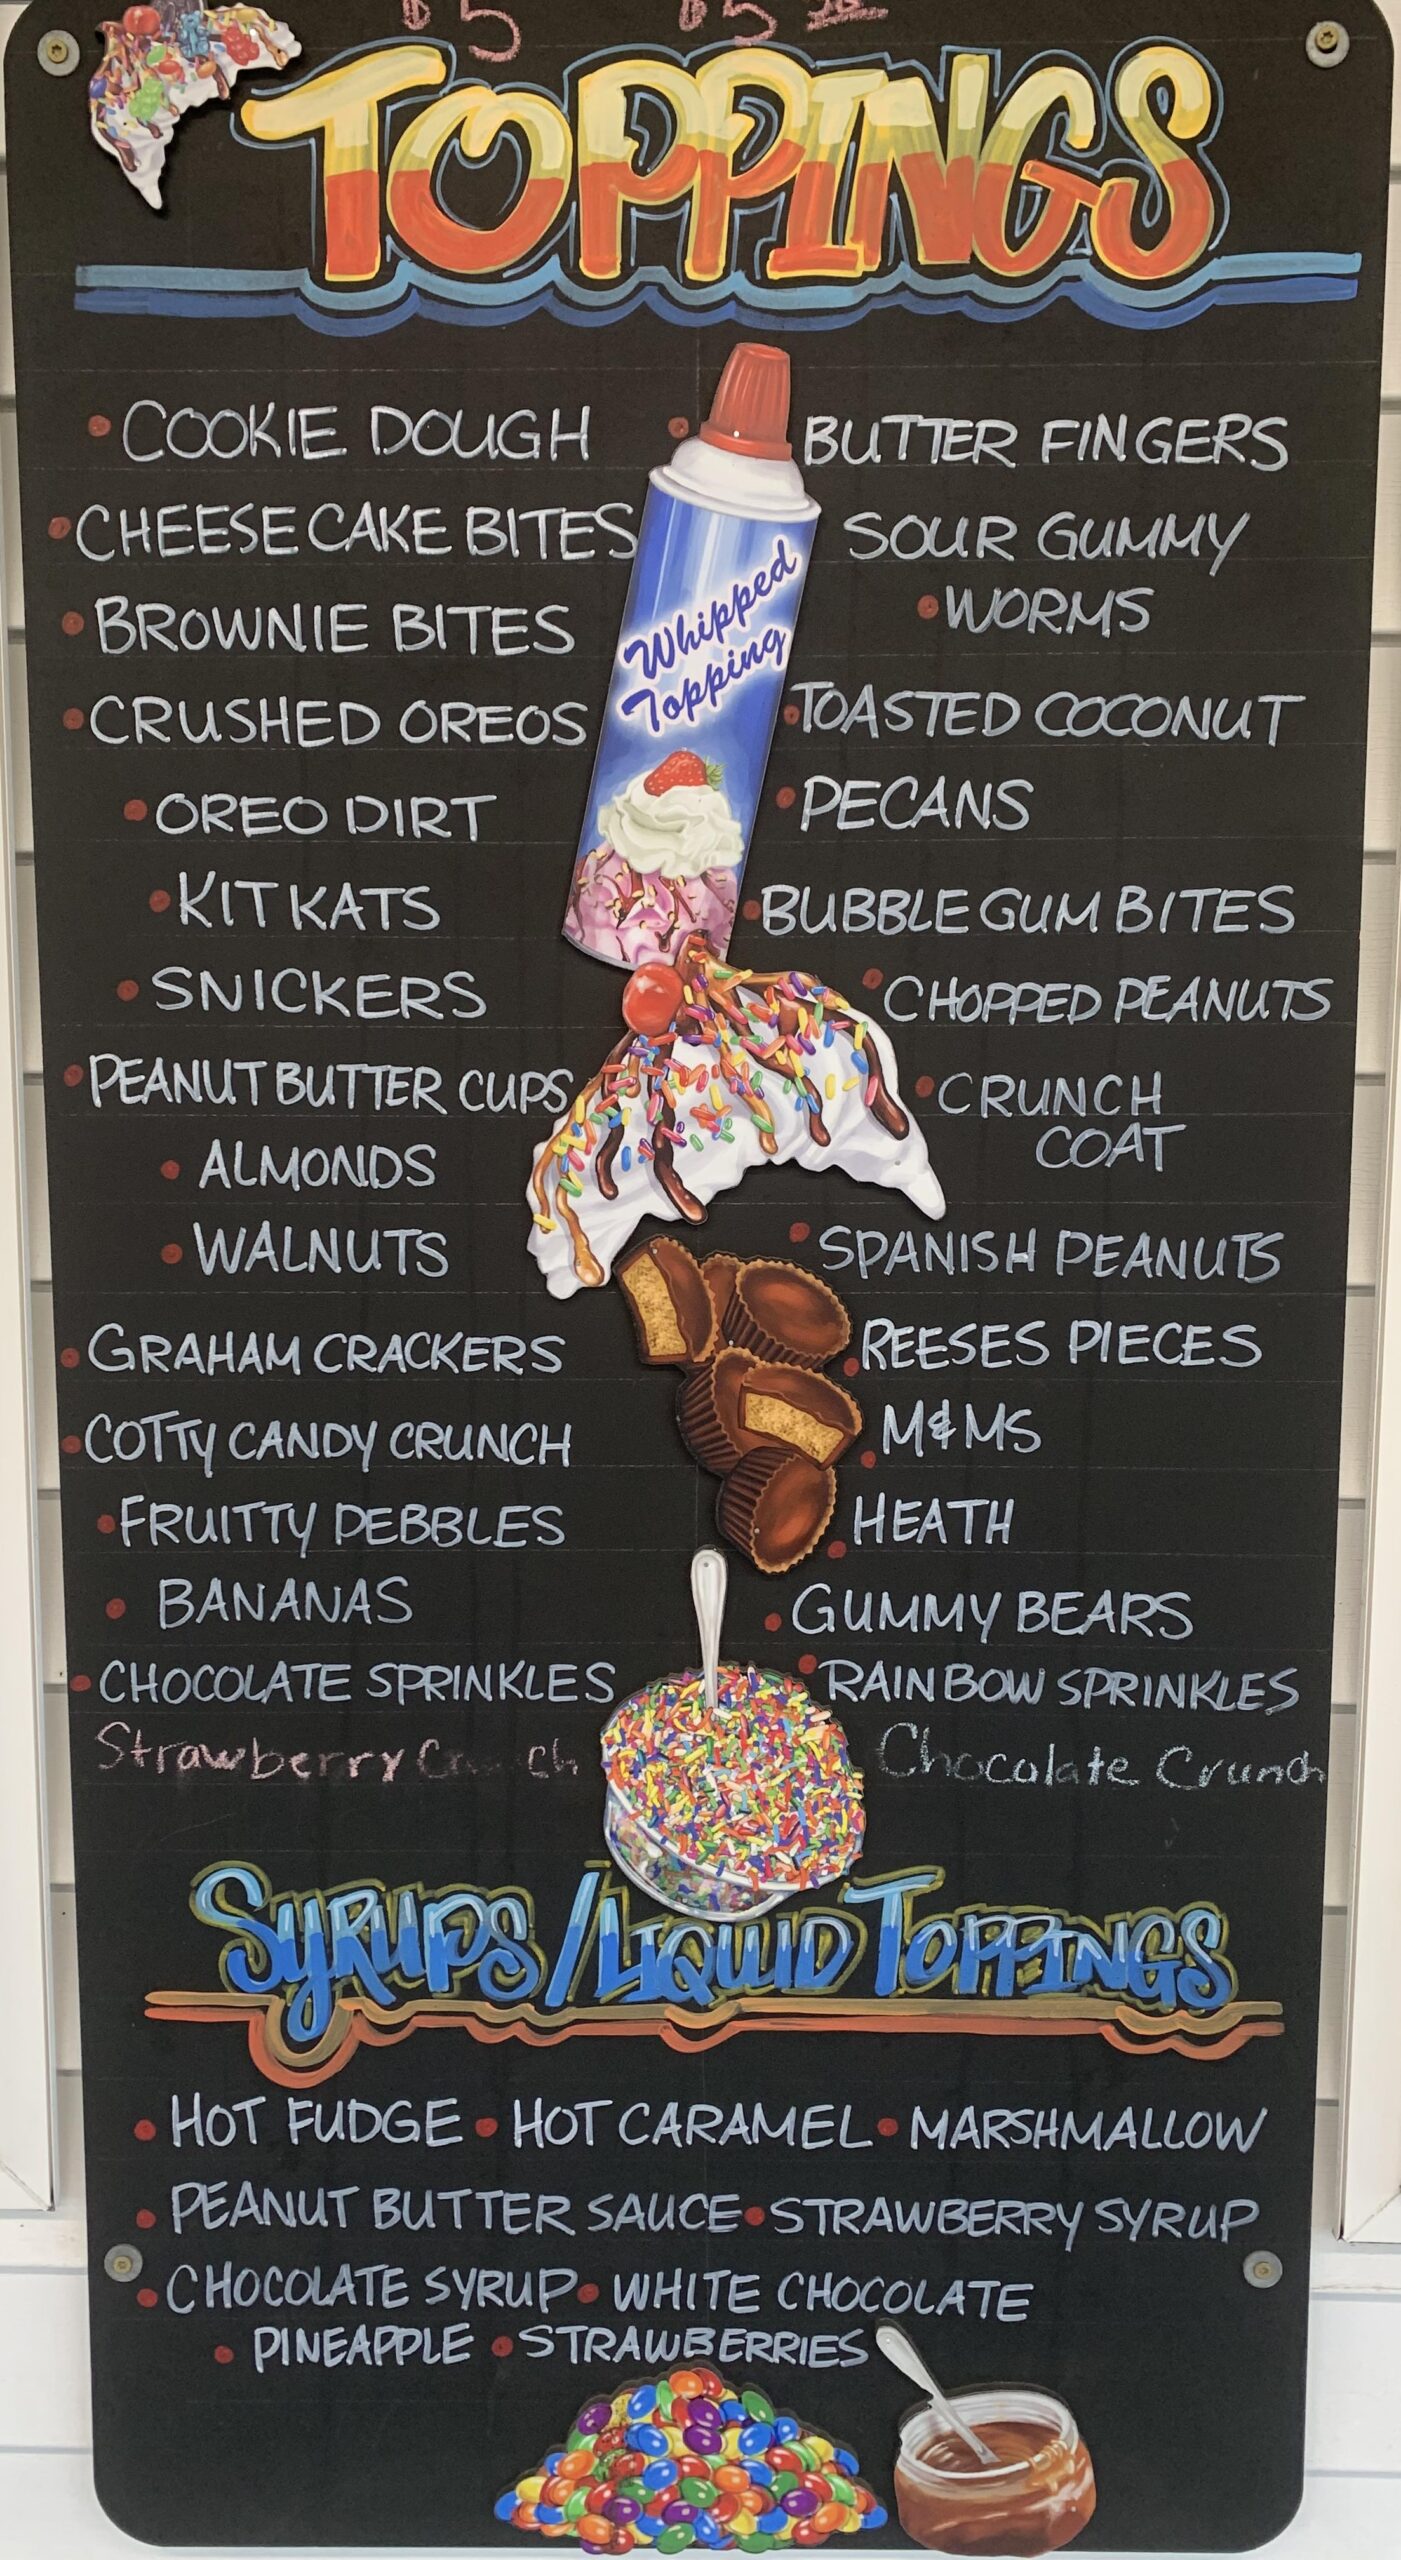 $5 $5
TOPPINGS
COOKIE DOUGH
CHEESE CAKE BITES
BROWNIE BITES
CRUSHED OREOS
OREO DIRT
KIT KATS
SNICKERS
PEANUT BUTTER CUPS
ALMONDS
WALNUTS
GRAHAM CRACKERS
COTTY CANDY CRUNCH
FRUITTY PEBBLES
BANANAS
CHOCOLATE SPRINKLES
Strawberry
Whipped
Topping
BUTTER FINGERS
SOUR GUMMY
WORMS
TOASTED COCONUT
PECANS
BUBBLE GUM BITES
CHOPPED PEANUTS
CRUNCH
COAT
SPANISH PEANUTS
REESES PIECES
M&MS
HEATH
GUMMY BEARS
RAINBOW SPRINKLES
Chocolate Crunch
SYRUPS/LIQUID TOPPINGS
• HOT FUDGE • HOT CARAMEL • MARSHMALLOW
• PEANUT BUTTER SAUCE • STRAWBERRY SYRUP
• CHOCOLATE SYRUP • WHITE CHOCOLATE
• PINEAPPLE • STRAWBERRIES